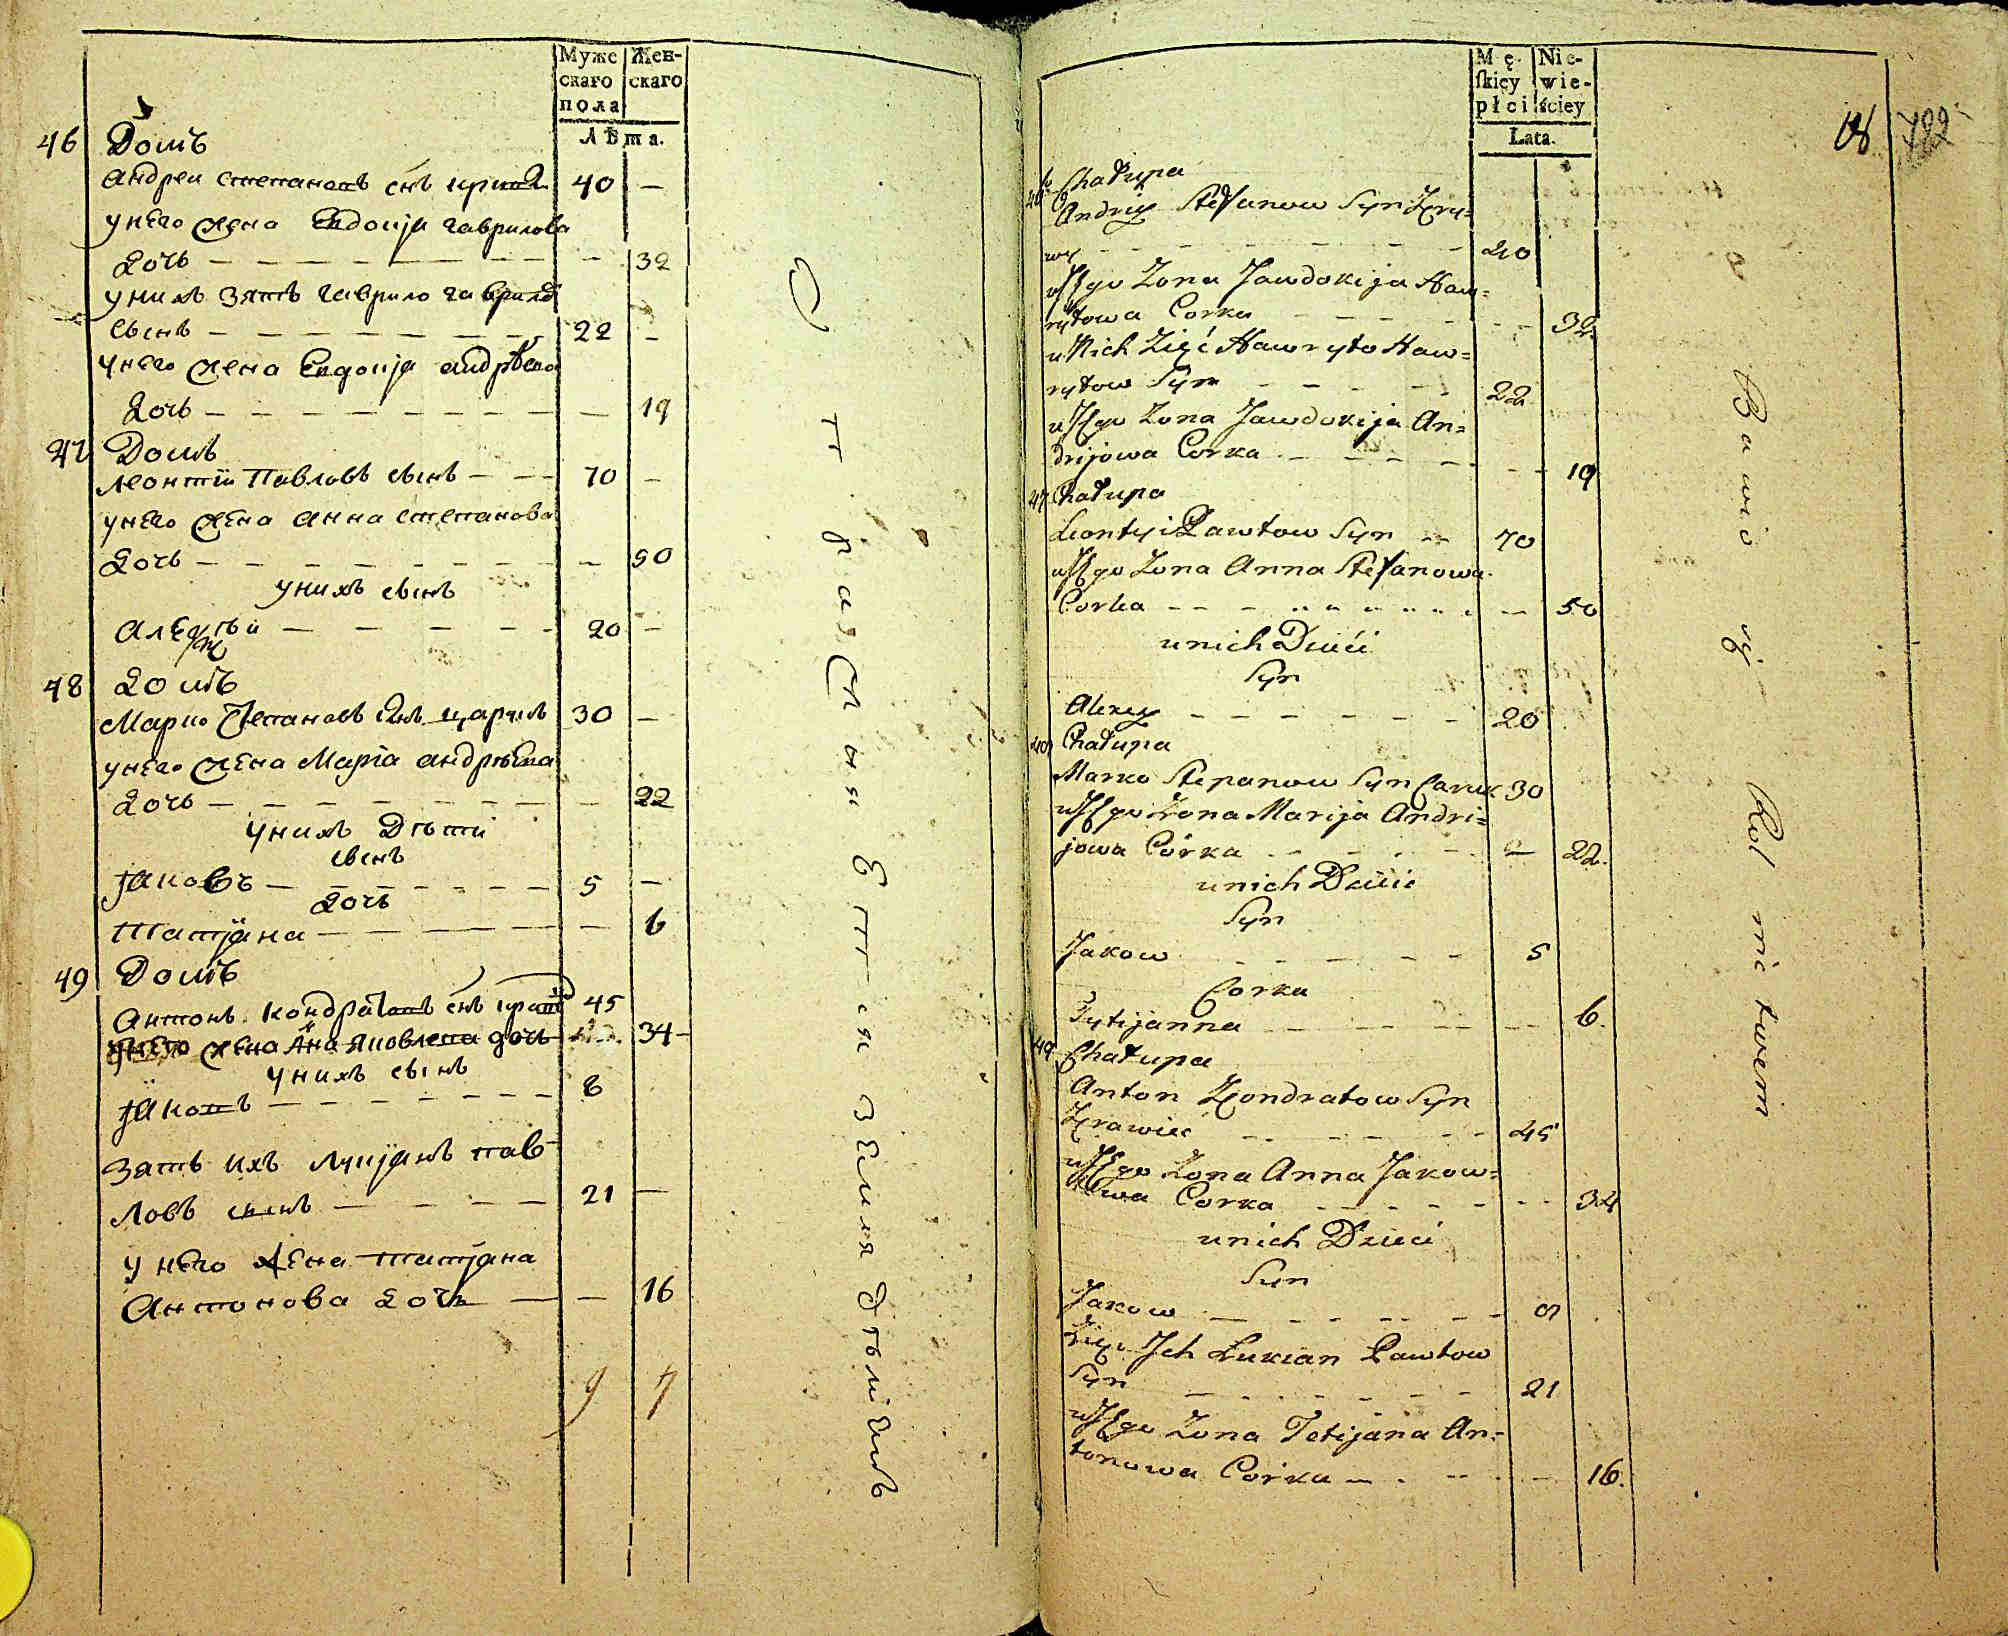 Муже
скаго
пола
Жен-
скаго
Лѣта.
46 Домъ
Андреи Степановъ снъ 40 —
унего жена Евдокја гаврилова
дочь — — — — 32
унихъ зять гаврило гаврилов
сынъ — — — — 22 —
унего жена Евдокја андрѣева
дочь — — — — 19
47 Домъ
Леонтіи Павловъ сынъ — — 70 —
унего жена анна степанова
дочь — — — — 50
унихъ сынъ
Алеѯѣи — — — — 20 —
48 домъ
Марко Степановъ снъ царукъ 30 —
унего жена Маріа андрѣева
дочь — — — — 22
унихъ Дѣти
сынъ
Јаковъ — — — — 5 —
дочь
татјана — — — — 6
49 Домъ
Антонъ Кондратовъ снъ 45
унего жена Анна Яковлева дочь 34 —
унихъ сынъ
Јаковъ — — — — 8
зять ихъ лукјанъ пав-
ловъ сынъ — — — — 21 —
у него жена татјана
Антонова дочь — — 16
9 7
Отправляется земля дѣлиемъ
Mę-
skiey
płci
Nie-
wie-
ściey
Lata.
18 722
46 Chałupa
Andrey Stefanow Syn Kra-
wy — — — — 40
u Jego Żona Jawdokija Haw-
ryłowa Corka — — — — 32
u Nich Zięć Hawryło Haw-
ryłow Syn — — — — 22
u Jego Żona Jawdokija An-
drijowa Corka — — — — 19
47 Chałupa
Leontyi Pawłow Syn — — 70
u Jego Żona Anna Stefanowa
Corka — — — — 50
unich Dzieci
Syn
Alexey — — — — 20
48 Chałupa
Marko Stepanow Syn Caruk 30
u Jego Żona Marija Andri-
jowa Córka — — — — 22.
unich Dzieci
Syn
Jakow — — — — 5
Corka
Tytijanna — — — — 6.
49 Chałupa
Anton Kondratow Syn
Krawiec — — — — 45
u Jego Żona Anna Jakow-
lewa Corka — — — — 34
unich Dzieci
Syn
Jakow — — — — 8
Zięć Ich Łukian Pawłow
Syn — — — — 21
u Jego Żona Tetijana An-
tonowa Corka — — 16.
Bawią Rolnictwem